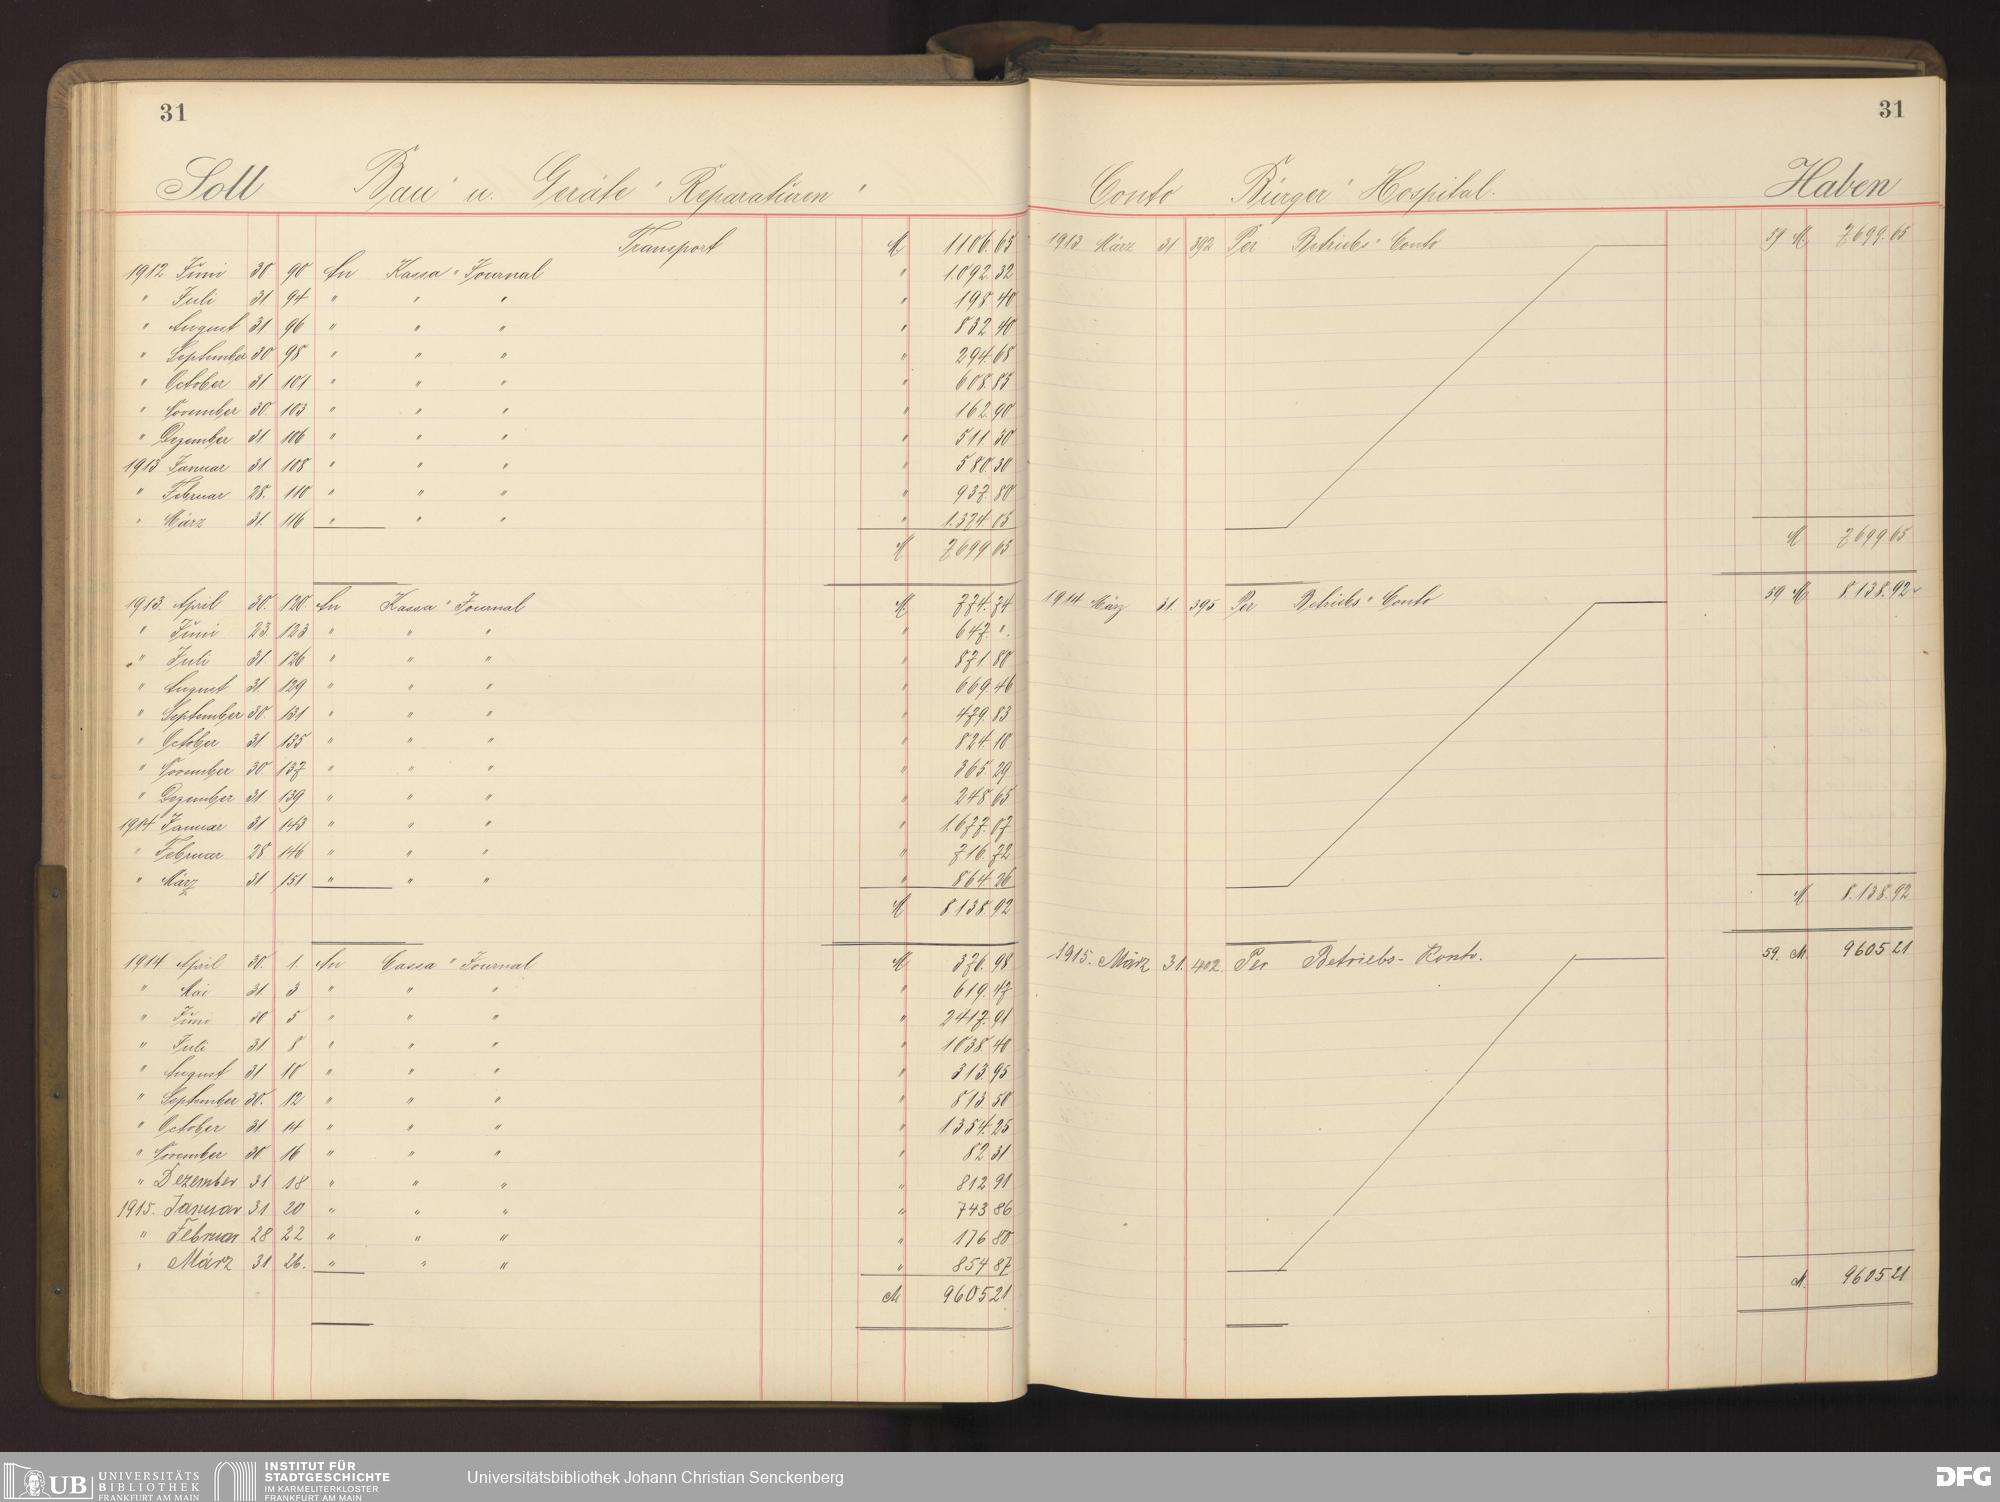 31
Soll Bau- u. Geräte-Reparaturen-
Transport M 1106.65
1912 Juni 30 90 An Kassa-Journal " 1.092.32
" Juli 31 94 " " " " 198.40
" August 31 96 " " " " 832.40
" September 30 98 " " " " 294.68
" October 31 101 " " " " 608.85
" November 30. 103 " " " " 162.90
" Dezember 31. 106 " " " " 511.30
1913 Januar 31. 108 " " " " 580.30
" Februar 28. 110 " " " " 937.80
" März 31. 116 " " " " 1.374.05
M 7699.65
1913. April 30. 120. An Kassa-Journal M 774.74
" Juni 23. 123 " " " " 647. ".
" Juli 31. 126 " " " " 871.80
" August 31. 129 " " " " 669.46
" September 30. 131 " " " " 479.83
" October 31 135 " " " " 824.10
" November 30. 137 " " " " 365.29
" Dezember 31 139 " " " " 248.65
1914 Januar 31 143 " " " " 1.677.07
" Februar 28 146 " " " " 716.72
" März 31 151 " " " " 864.26
M 8.138.92
1914 April 30. 1. An Cassa-Journal M 376.98
" Mai 31. 3 " " " " 619.47
" Juni 30 5 " " " " 2417.91
" Juli 31. 8 " " " " 1038.40
" August 31 10 " " " " 313.95
" September 30. 12 " " " " 813.50
" October 31. 14 " " " " 1354.25
" November 30. 16 " " " " 82.31
" Dezember 31 18 " " " " 812 91
1915. Januar 31 20 " " " " 743 86
" Februar 28 22 " " " " 176 80
" März 31 26. " " " " 854 87
M 9605 21
31
Conto Bürger-Hospital. Haben
1913 März 31 392 Per Betriebs-Conto 59 M 7699.65
M 7699 65
1914 März 31. 395 Per Betriebs-Conto 59 M 8.138.92
M 8.138.92
1915. März 31. 402. Per Betriebs-Konto. 59. M. 9605 21
M. 9605 21
UB UNIVERSITÄTS
BIBLIOTHEK
FRANKFURT AM MAIN
INSTITUT FÜR
STADTGESCHICHTE
IM KARMELITERKLOSTER
FRANKFURT AM MAIN
Universitätsbibliothek Johann Christian Senckenberg
DFG